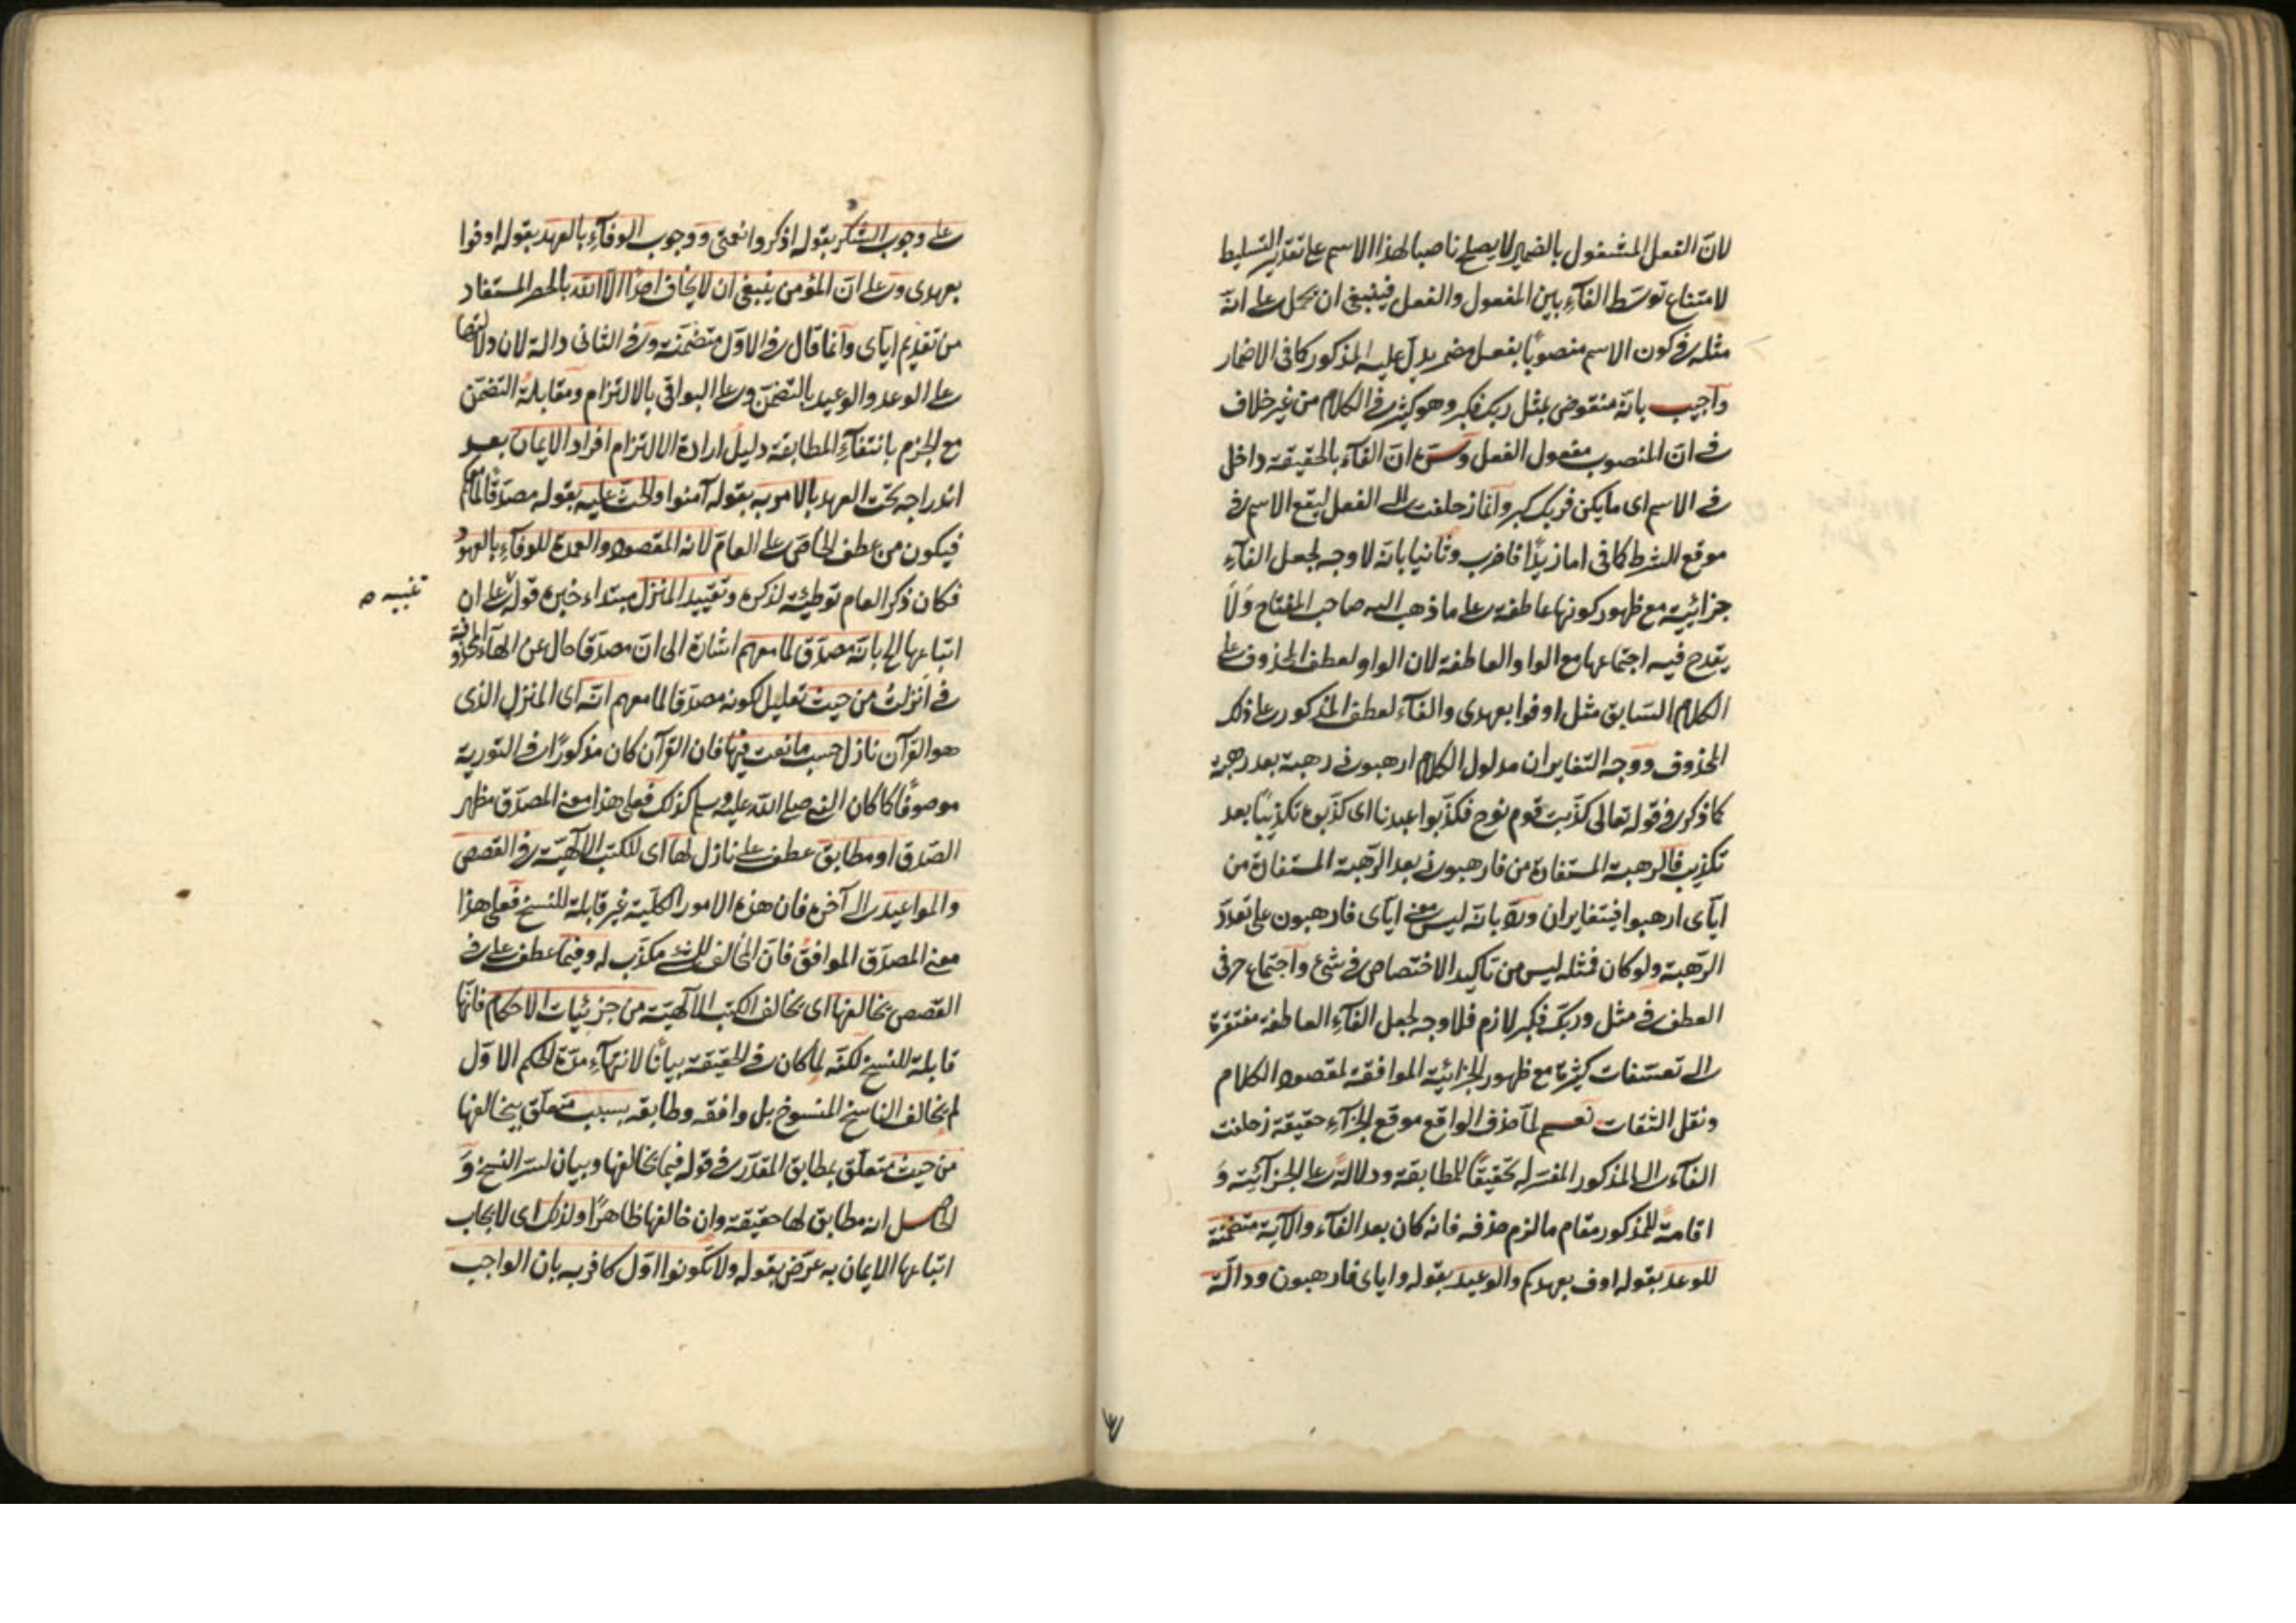 لانّ الفعل المشغول بالضمير لا يصلح ناصبا لهذا الاسم على تقدير التسليط
لامتناع توسّط الفآء بين المفعول والفعل فينبغى ان يحمل على انّه
مثله فى كون الاسم منصوبًا بفعل مضمر يدلّ عليه المذكور كما فى الاضمار
واجيب بانّه منقوض بمثل ربك فكبر وهو كثير فى الكلام من غير خلاف
فى انّ المنصوب مفعول الفعل وسرّه انّ الفآء بالحقيقة داخل
فى الاسم اى ما يكن فربك كبر وانّما زحلفت الى الفعل ليقع الاسم فى
موقع الشرط كما فى اما زيدًا فاضرب وثانيا بانّه لا وجه لجعل الفآء
جزائيّة مع ظهور كونها عاطفة على ما ذهب اليه صاحب المفتاح ولا
يقدح فيه اجتماعها مع الواو العاطفة لان الواو لعطف المحذوف على
الكلام السّابق مثل اوفوا بعهدى والفآء لعطف المذكور على ذلك
المحذوف ووجه التغاير ان مدلول الكلام ارهبونى رهبة بعد رهبة
كما ذكر فى قوله تعالى كذّبت قوم نوح فكذّبوا عبدنا اى كذّبوه تكذيبًا بعد
تكذيب فالرهبة المستفادة من فارهبون بعد الرّهبة المستفادة من
ايّاى ارهبوا فيتغايران وردّ بانّه ليس معنى ايّاى فارهبون على تعدّد
الرّهبة ولو كان فمثله ليس من تاكيد الاختصاص فى شئ واجتماع حرفى
العطف فى مثل وربّك فكبر لازم فلا وجه لجعل الفآء العاطفة مفتقرة
الى تعسّفات كثيرة مع ظهور الجزائيّة الموافقة لمقصود الكلام
ونقل الثقات نعم لمّا حذف الواقع موقع الجزآء حقيقة زحلفت
الفآء الى المذكور المفسّر له تحقيقًا للمطابقة ودلالةً على الجزآئيّة و
اقامةً للمذكور مقام ما لزم حذفه فانه كان بعد الفآء والآية متضمّنة
للوعد بقوله اوف بعهدكم والوعيد بقوله واياى فارهبون ودالّة
على وجوب الشكر بقوله اذكروا نعمتى ووجوب الوفآء بالعهد بقوله اوفوا
بعهدى وعلى انّ المؤمن ينبغى ان لا يخاف احدًا الّا الله بالحصر المستفاد
من تقديم ايّاى وانّما قال فى الاوّل متضمّنة وفى الثانى دالة لان دلالتها
على الوعد والوعيد بالتضمّن وعلى البواقى بالالتزام ومقابلة التضمّن
مع الجزم بانتفآء المطابقة دليل ارادة الالتزام افراد الايمان بعد
اندراجه تحت العهد بالامر به بقوله آمنوا والحثّ عليه بقوله مصدّقا لما معكم
فيكون من عطف الخاصّ على العامّ لانه المقصود والعمدة للوفآء بالعهود
فكان ذكر العام توطئة لذكره وتقييد المنزل مبتداء خبره قوله على ان
تنبيه
اتباعها الخ بانّه مصدّق لما معهم اشارة الى انّ مصدّقا حال عن الهآء المحذوفة
فى انزلت من حيث تعليل لكونه مصدّقا لما معهم انّه اى المنزل الذى
هو القرآن نازل حسب ما نعت فيها فان القرآن كان مذكورًا فى التورية
موصوفًا كما كان النبى صلى الله عليه وسلم كذلك فعلى هذا معنى المصدّق مظهر
الصّدق او مطابق عطف على نازل لها اى للكتب الالٓهيّة فى القصص
والمواعيد الى آخره فان هذه الامور الكلّية غير قابلة للنسخ فعلى هذا
معنى المصدّق الموافق فانّ المخالف للشئ مكذّب له وفيما عطف على فى
القصص يخالفها اى يخالف الكتب الالٓهيّة من جزئيات الاحكام فانّها
قابلة للنسخ لكنّه لمّا كان فى الحقيقة بيانًا لانتهآء مدّة الحكم الاوّل
لم يخالف الناسخ المنسوخ بل وافقه وطابقه بسبب متعلّق بيخالفها
من حيث متعلّق بمطابق المقدّر فى قوله فيما يخالفها وبيان لسرّ النسخ و
الحاصل انه مطابق لها حقيقة وان خالفها ظاهرًا ولذلك اى لايجاب
اتباعها الايمان به عرّض بقوله ولا تكونوا اوّل كافر به بان الواجب